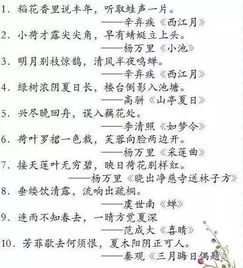 1. 稻花香里说丰年，听取蛙声一片。
——辛弃疾《西江月》
2. 小荷才露尖尖角，早有蜻蜓立上头。
——杨万里《小池》
3. 明月别枝惊鹊，清风半夜鸣蝉。
——辛弃疾《西江月》
4. 绿树浓阴夏日长，楼台倒影入池塘。
——高骈《山亭夏日》
5. 兴尽晚回舟，误入藕花处。
——李清照《如梦令》
6. 荷叶罗裙一色裁，芙蓉向脸两边开。
——杨万里《采莲曲》
7. 接天莲叶无穷碧，映日荷花别样红。
——杨万里《晓出净慈寺送林子方》
8. 垂緌饮清露，流响出疏桐。
——虞世南《蝉》
9. 连雨不知春去，一晴方觉夏深
——范成大《喜晴》
10. 芳菲歇去何须恨，夏木阴阴正可人。
——秦观《三月晦日偶题》